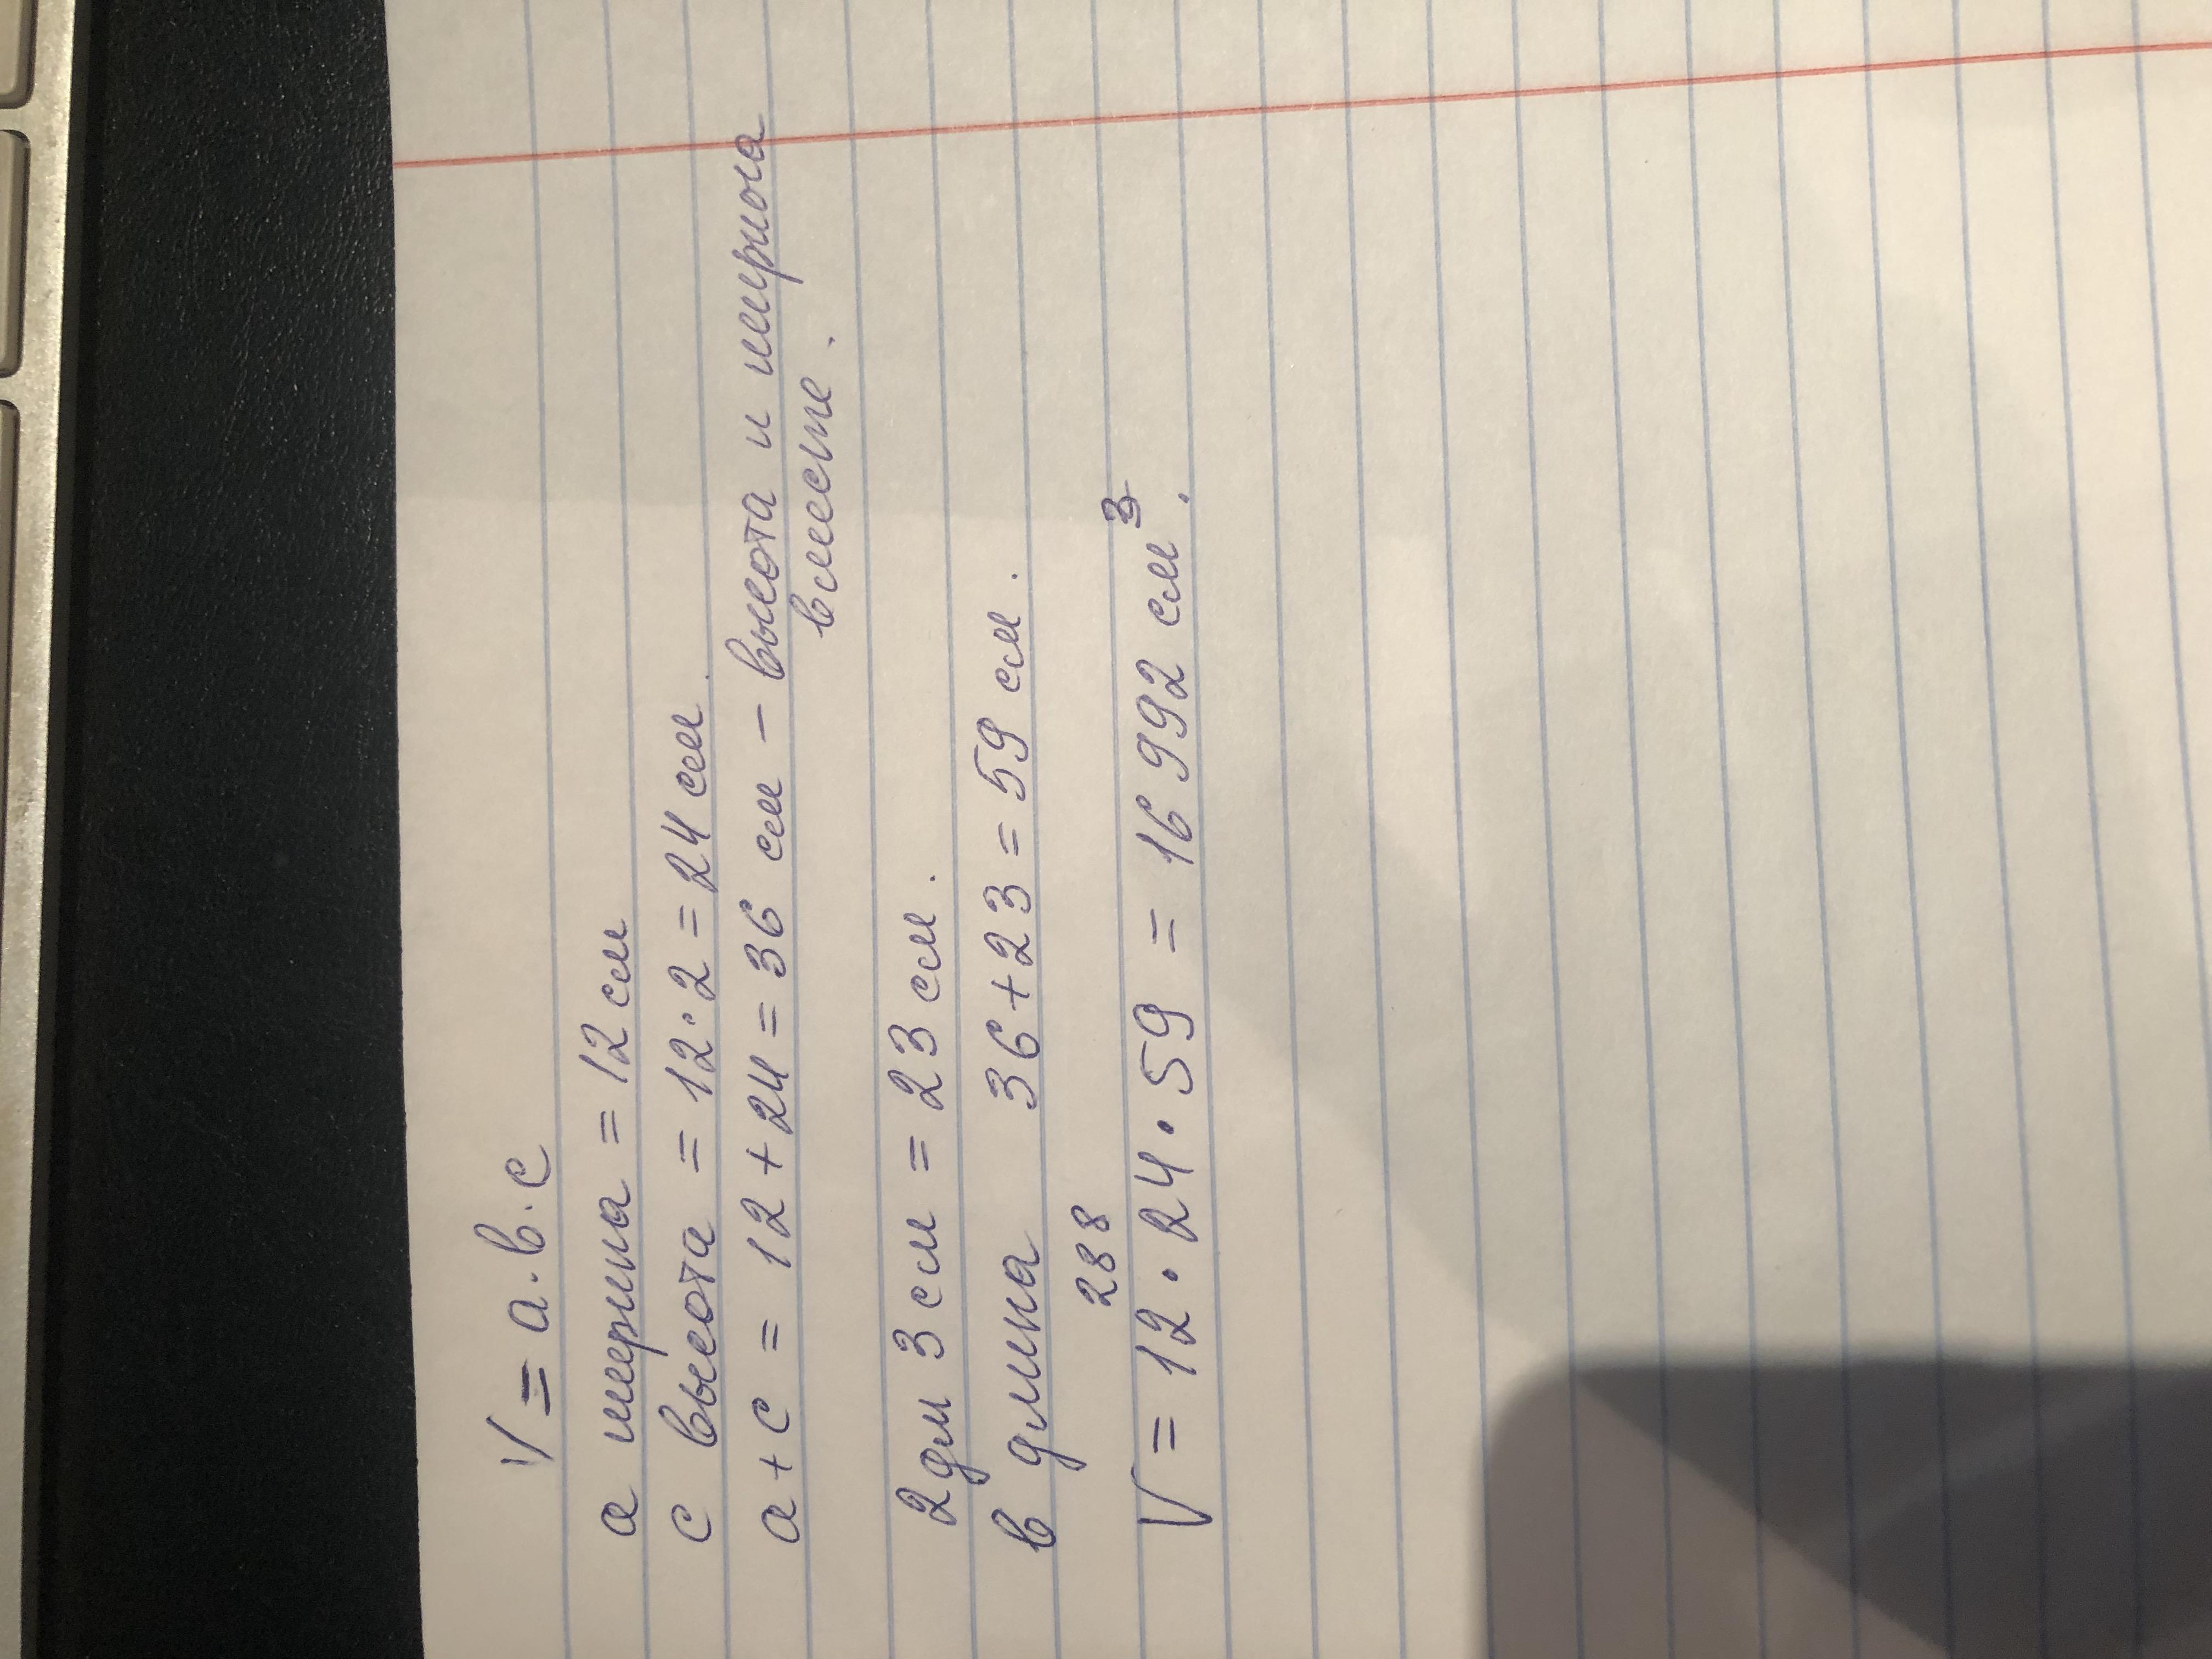 V = a · в · c
a ширина = 12 см
c высота = 12 · 2 = 24 см.
a + c = 12 + 24 = 36 см – высота и ширина
вместе.
2 дм 3 см = 23 см.
в длина 36 + 23 = 59 см.
288
V = 12 · 24 · 59 = 16 992 см³.